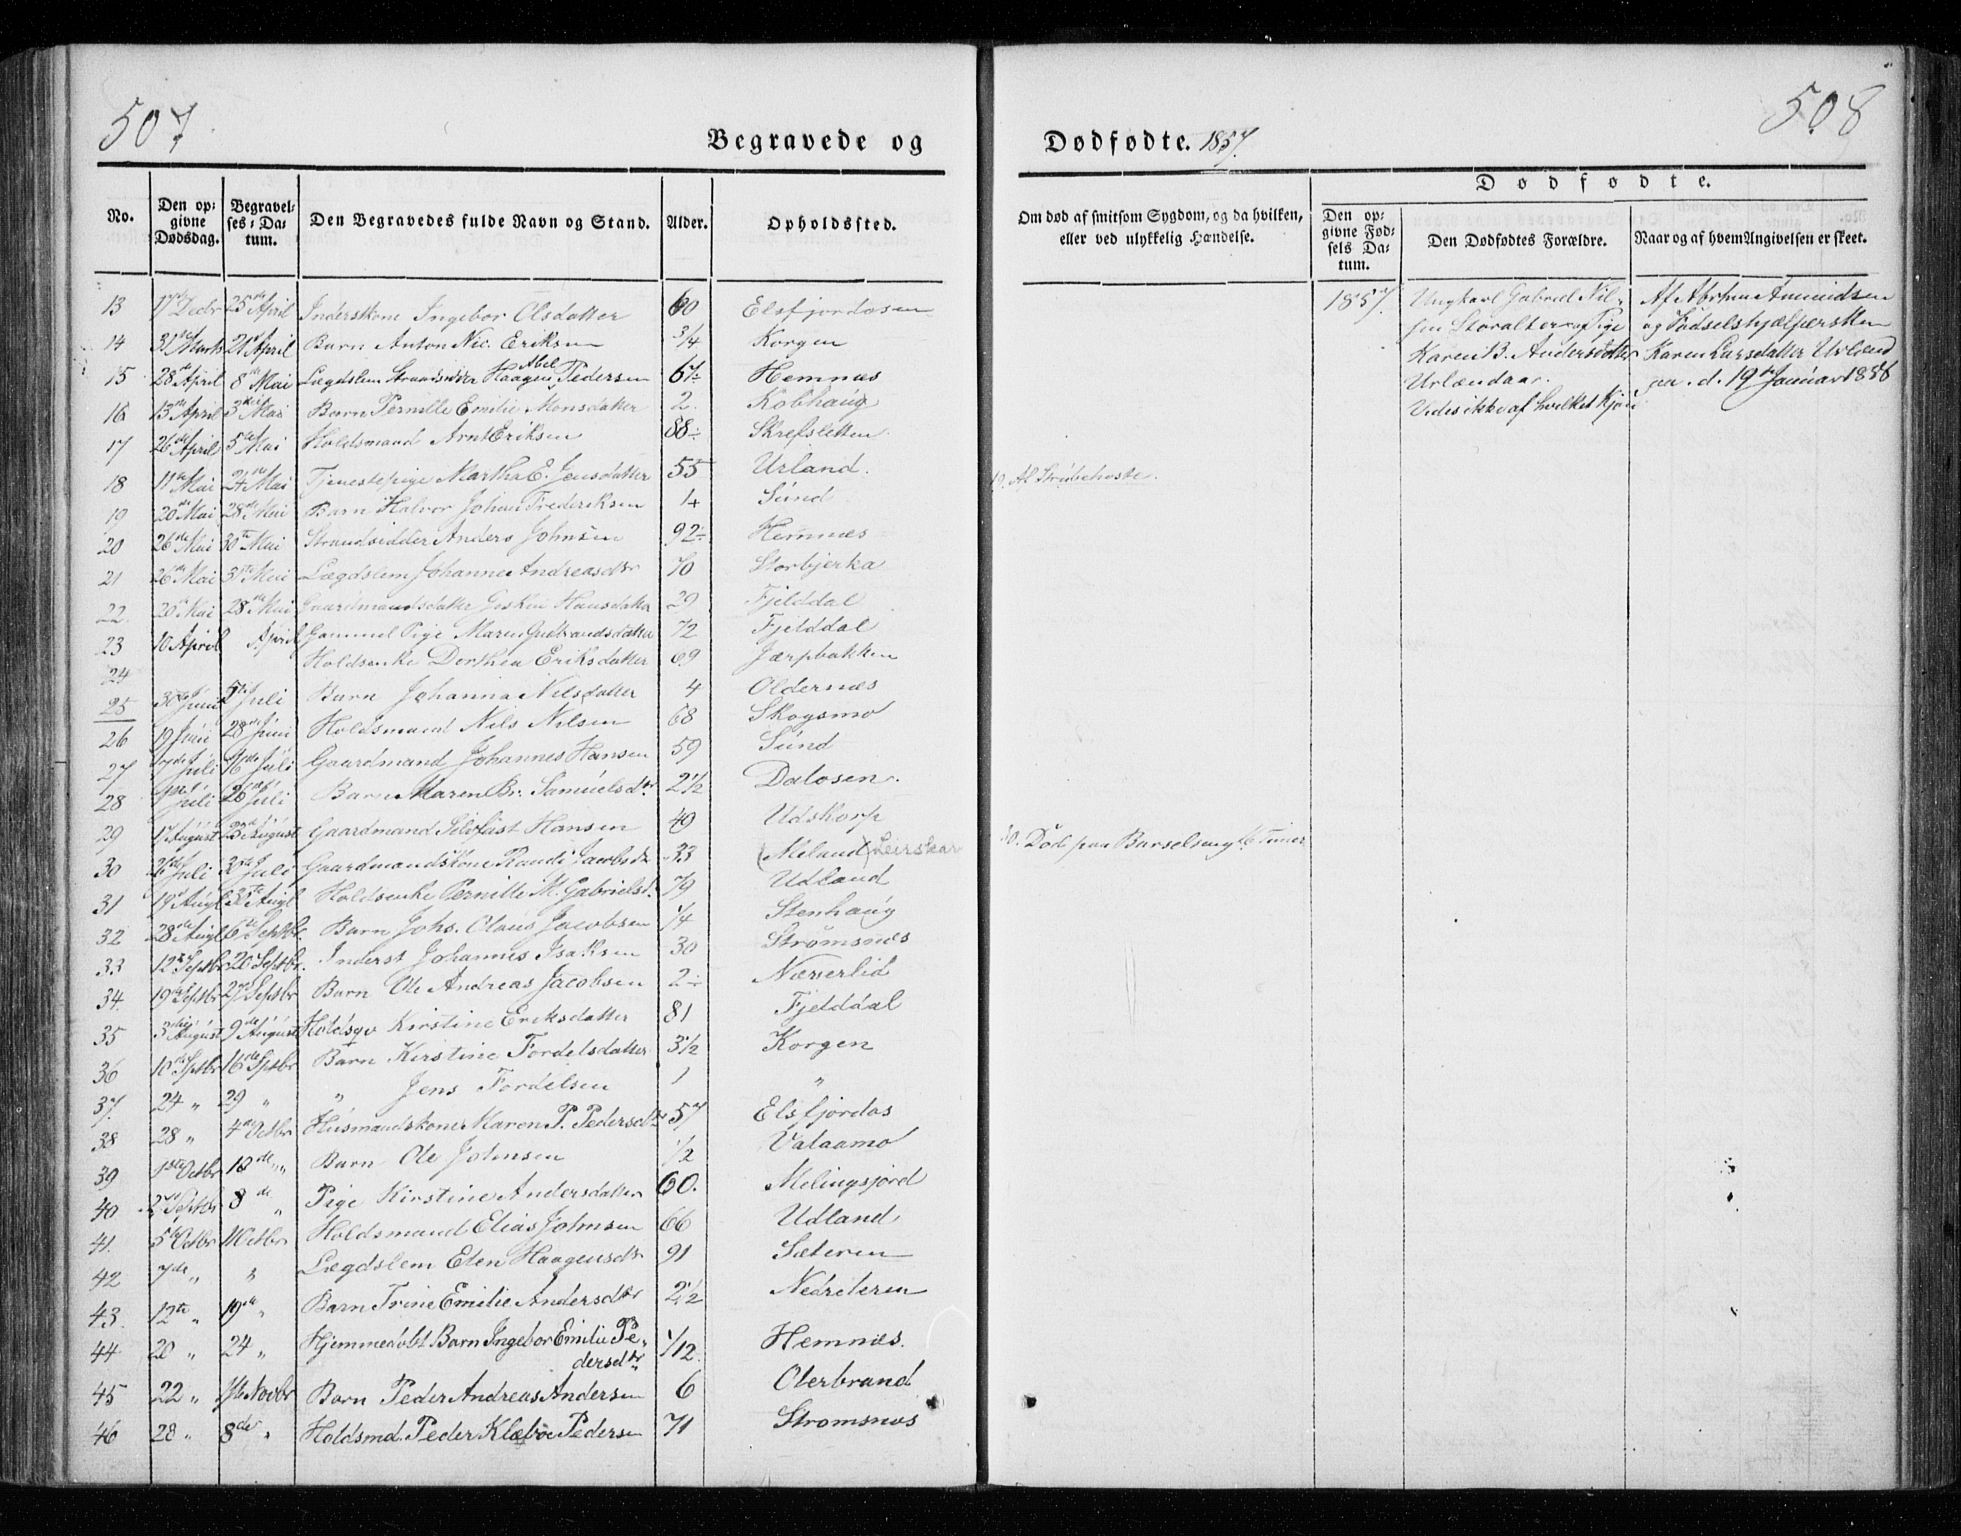 507
508
Begravede og
Dødfødte. 1857.
No.
Den op-
givne
Dødsdag.
Begravel-
ses-Da-
tum.
Den Begravedes fulde Navn og Stand.
Alder.
Opholdssted.
Om død af smitsom Sygdom, og da hvilken,
eller ved ulykkelig Hændelse.
Dødfødte.
Den op-
givne Fød-
sels Da-
tum.
Den Dødfødtes Forældre.
Naar og af hvem Angivelsen er skeet.
13 17de Decbr 25de April Inderstkone Ingebor Olsdatter 60 Elsfjordosen
14 31te Marts 21de April Barn Anton Nic. Eriksen 3/4 Korgen
15 28de April 8de Mai Lægdslem Strandsidder Haagen Abel Pedersen 67 Hemnæs
16 13de April 3die Mai Barn Pernille Emilie Monsdatter 2 Kobhaug
17 26de April 5te Mai Holdsmand Arnt Eriksen 88 Skrefsletten
18 11te Mai 24de Mai Tjenestepige Martha E. Jensdatter 55 Urland.
19 20de Mai 28de Mai Barn Halvor Johan Frederiksen Sund
20 26de Mai 30te Mai Strandsidder Anders Johnsen 92 Hemnæs
21 26de Mai 31te Mai Lægdslem Johanne Andreasdtr 70 Storbjerka
22. 20de Mai 28de Mai Gaardmandsdatter Hansdatter 29 Fjelddal
23 10 April April Gammel Pige Maren Gulbrandsdatter 72 Fjelddal
24 Holdsenke Dorthea Eriksdatter 69 Jærpbakken
25 30te Juni Juli Barn Johanna Nilsdatter 4 Oldernæs
26 19 Juni 28de Juni Holdsmand Nils Nilsen 68 Skogsmo
27 7de Juli 16de Juli Gaardmand Johannes Hansen 59 Sund
28 Juli 26de Juli Barn Maren Br. Samuelsdtr 2 1/2 Dalosen.
29 August August Gaardmand Hansen 49 Udskorp
30 Juli Juli Gaardmandskone Randi Jacobsdtr 33 (Meland) Leirskar
31 19de Augt 30te Augt Holdsenke Pernille M. Gabrielsd. 79 Udland
32 28de Augt 6te Septbr. Barn Johs. Olaus Jacobsen 1/4 Stenhaug
33 12te Septbr 20 Septbr. Inderst Johannes Isaksen 30 Strømsnæs
34. 19de Septbr 27de Septbr Barn Ole Andreas Jacobsen 2 Næverlid
35 3die August 9de August Kirstine Eriksdatter 81 Fjelddal
36 10de Septbr 16de Septbr Barn Kirstine Fordelsdatter 3 1/2 Korgen
37. 24 „ 29 „ „ Jens Fordelsen 1 „
38 28 „ 4de Octbr Husmandskone Karen P. Pedersdtr 57 Elsfjordos
39 1ste Octbr 18de „ Barn Ole Johnsen 1/2 Valaamo
40 Septbr 8de „ Pige Kirstine Andersdatter 60. Melingsjord
41. 5te Octbr 11 Octbr Holdsmand Elias Johnsen 66 Udland
42 7de „ „ Lægdslem Elen Haagensdtr 91 Sæteren
43. 12te „ 19de „ Barn Trine Emilie Andersdtr 2 1/2 Nedreleren
44 20 „ 24 „ Hjemmedøbt Barn Ingebor Emilie Pe-
dersdtr 1/12. Hemnæs.
45 22 „ Novbr Barn Peder Andreas Andersen 6 Olerbrand
46 28 „ 8de „ Holdsmd. Peder Klæboe Pedersen 71 Strømsnæs
19. Af Strubehoste.
30. Død paa Barselseng 6 Timer
1857.
Ungkarl Gabriel Nil-
sen Storalteren Pige
Karen B. Andersdatter
Urlandaar.
Vides ikke af hvilket Kjøn
Af Abrham Amundsen
og Fødselshjælpersken
Karen Larsdatter Urland
paa. d. 19de Januar 1858